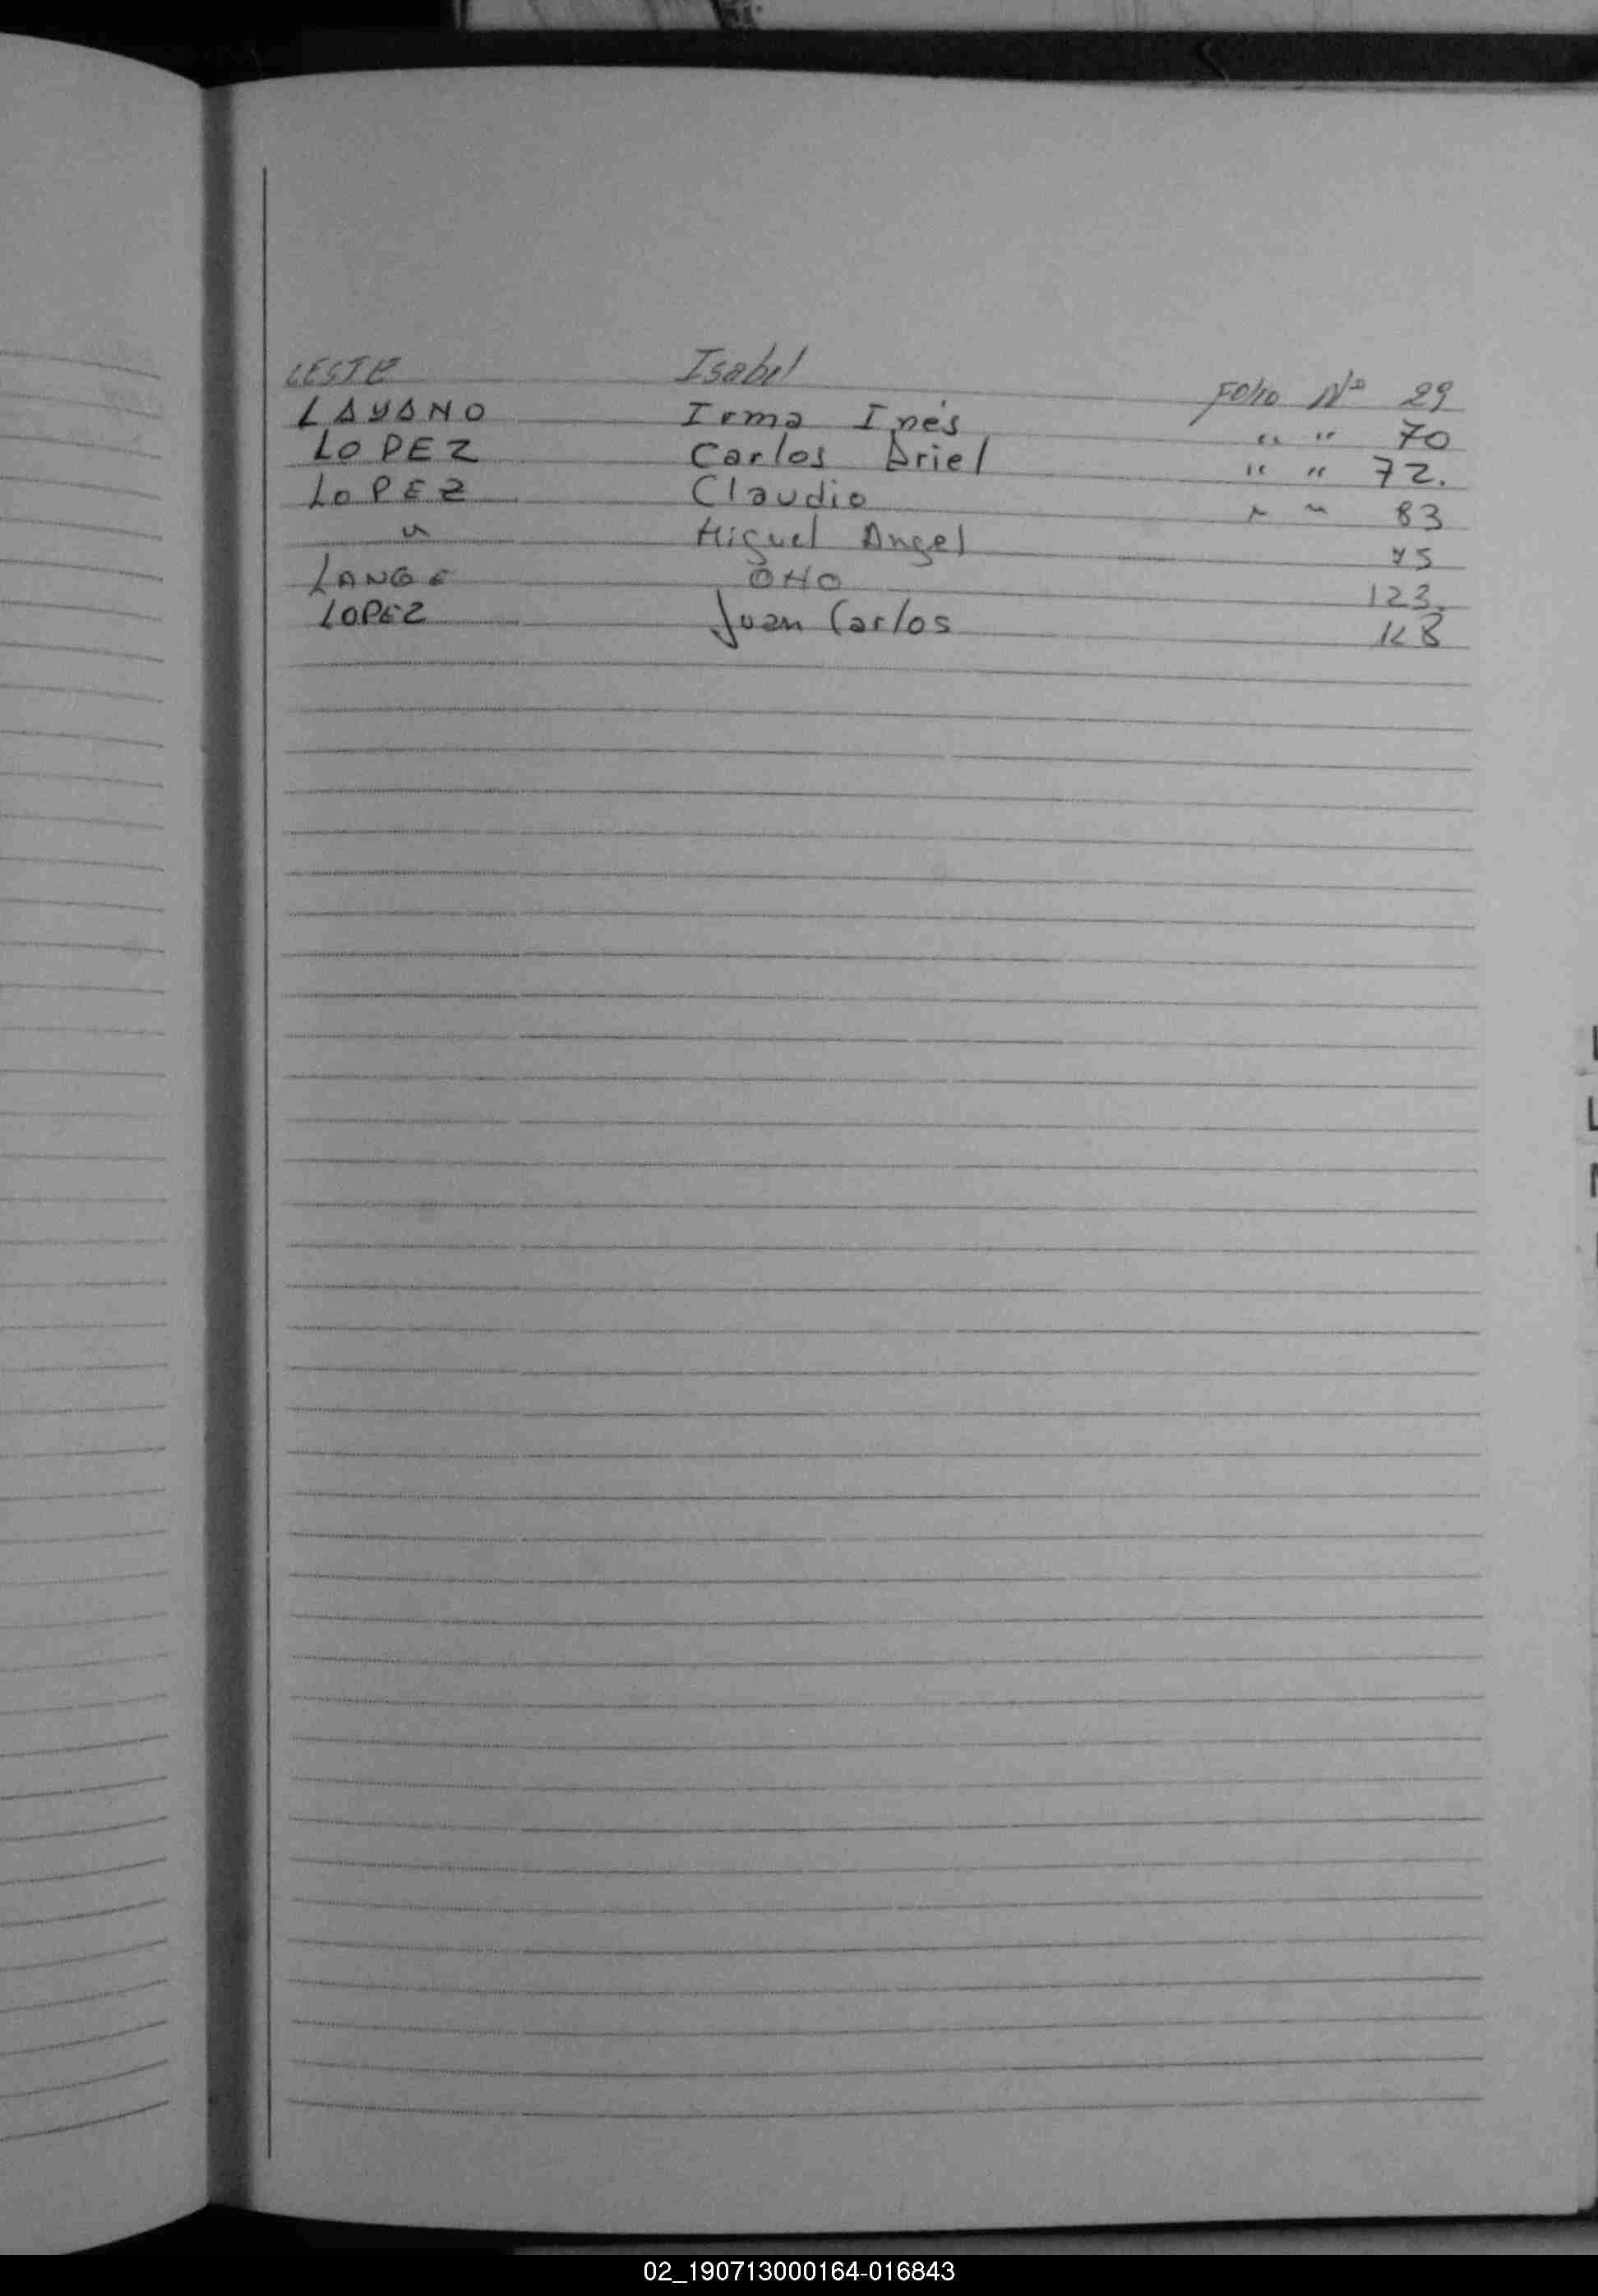 LESTE Isabel Folio Nº 29
LAYANO Irma Inés " " 70
LOPEZ Carlos Ariel " " 72.
LOPEZ Claudio " " 83
" Miguel Angel
LANGE Otto 123.
LOPEZ Juan Carlos 128
02_190713000164-016843